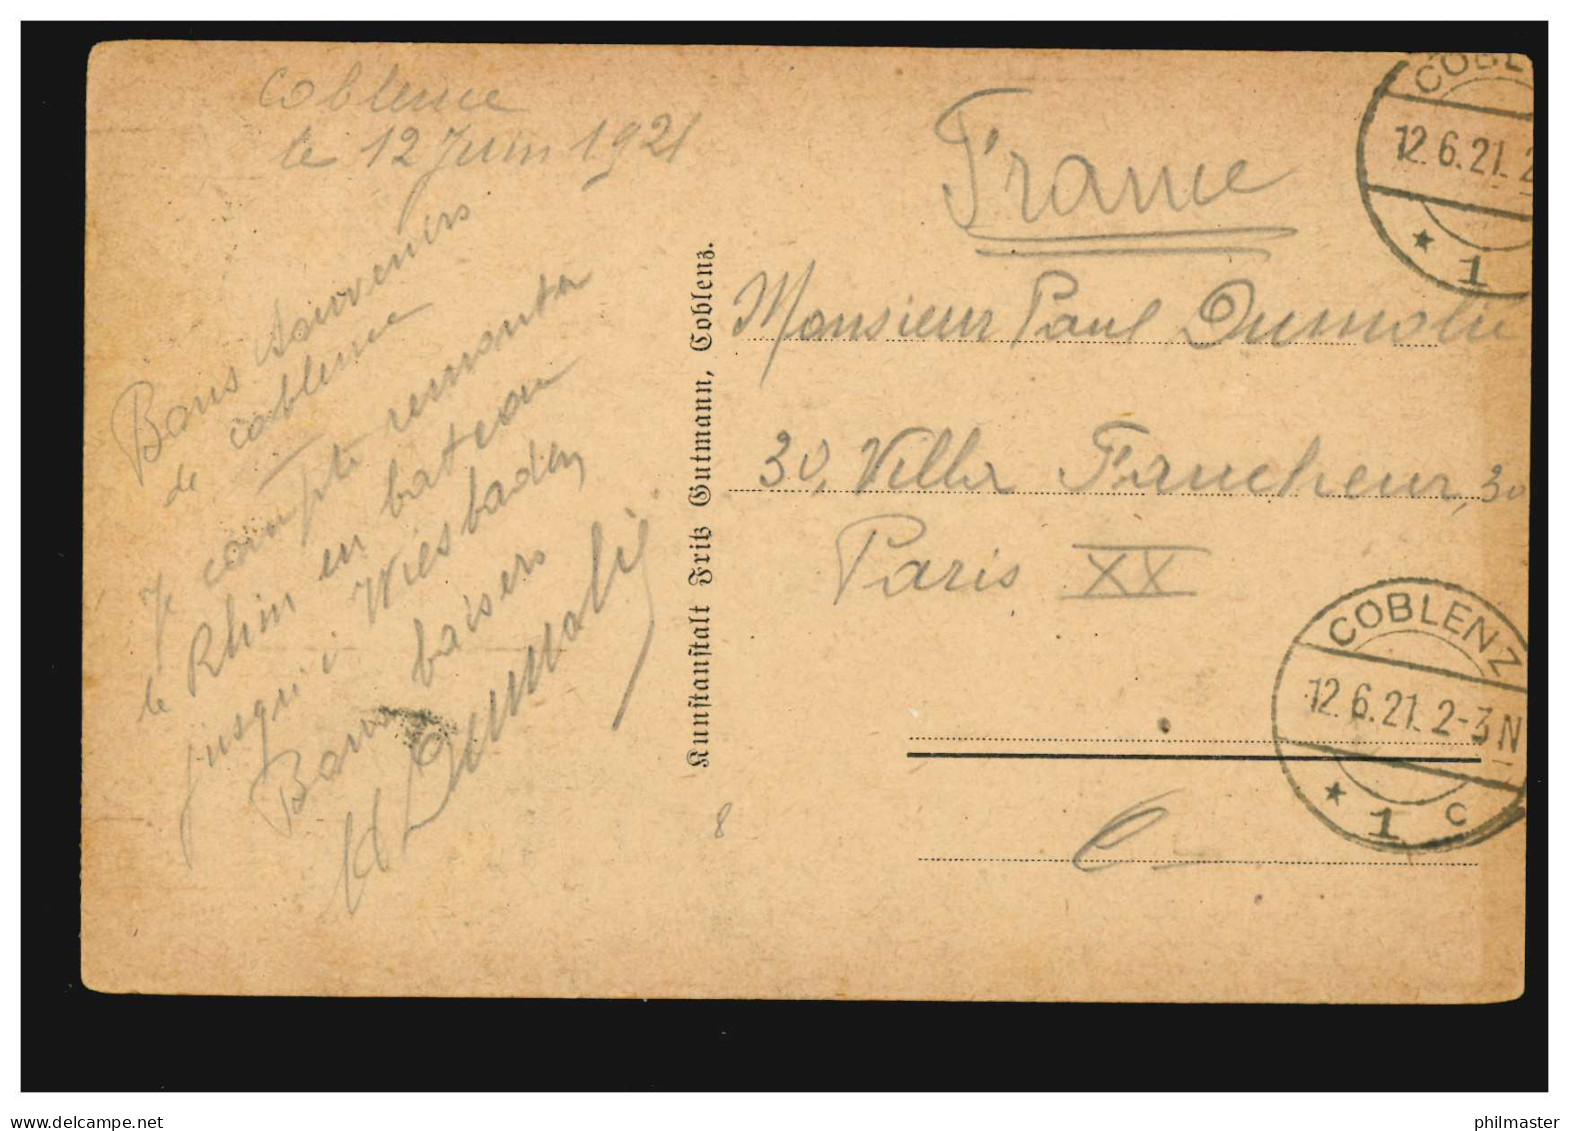 Coblence
le 12 Juin 1921
Bons souvenirs
de Coblence
Je compte remonter
le Rhin en bateau
jusqu'à Wiesbaden
Bons baisers
Kunstanstalt Fritz Gutmann, Coblenz.
France
Monsieur Paul
30, Villa Faucheur, 30
Paris XX
8
COBLENZ
12.6.21. 2
* 1
COBLENZ
12.6.21. 2-3 N
* 1 c
delcampe.net
philmaster